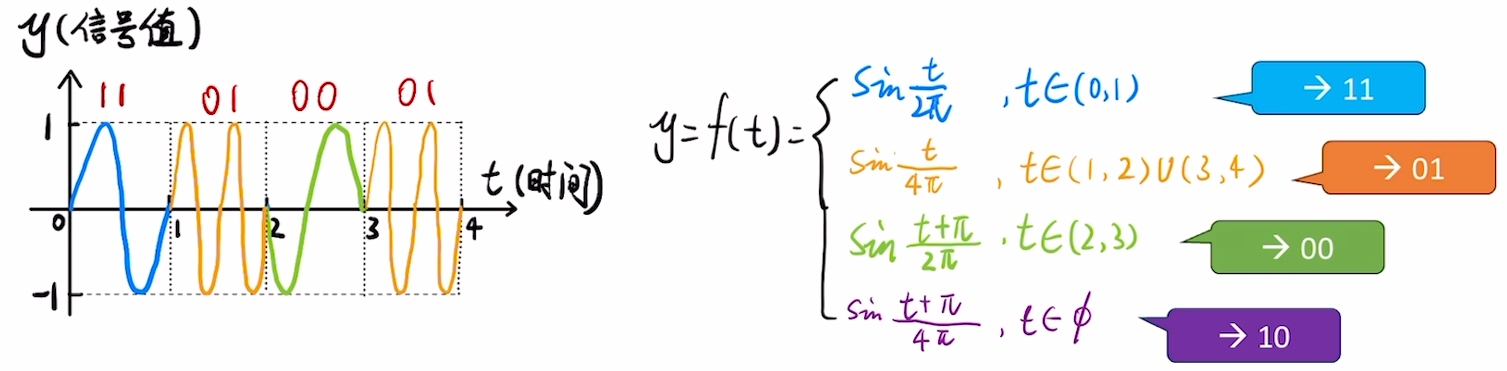 y(信号值)
11 01 00 01
1
t(时间)
0 1 2 3 4
-1
y=f(t)=
sin t/2π , t∈(0,1) → 11
sin t/4π , t∈(1,2)∪(3,4) → 01
sin t+π/2π , t∈(2,3) → 00
sin t+π/4π , t∈ϕ → 10